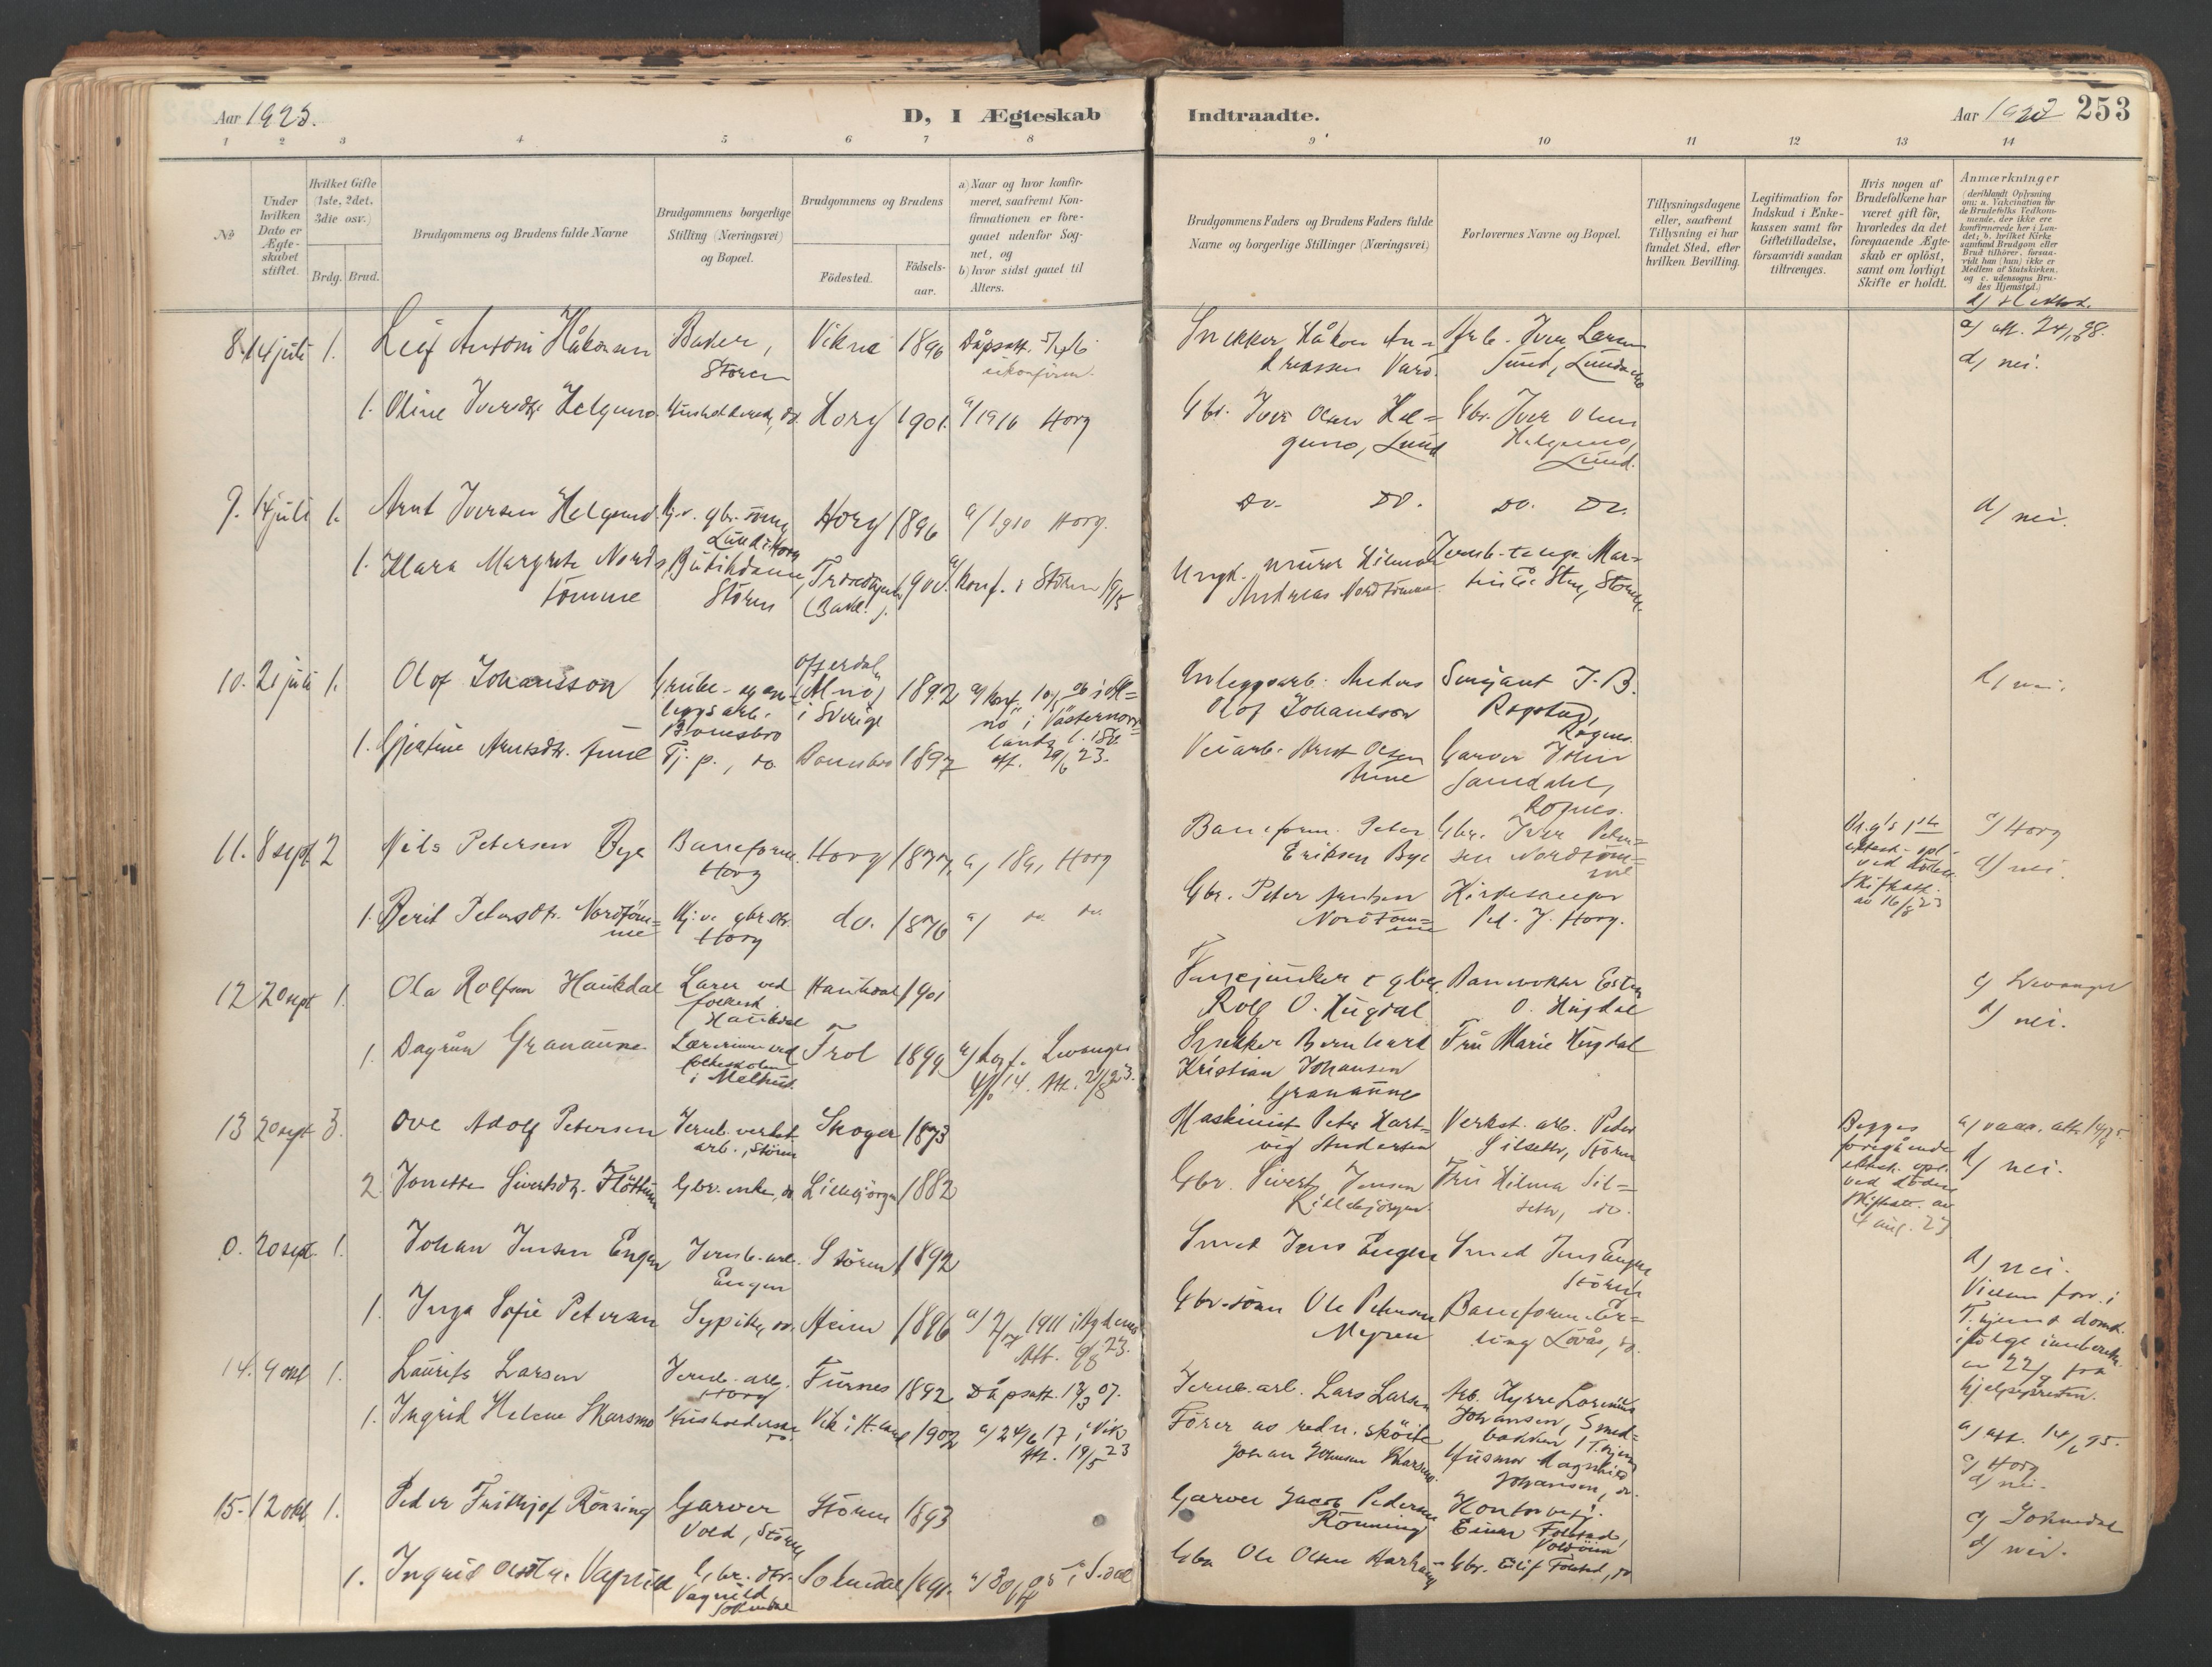 Aar 1923.
D, I Ægteskab
Indtraadte.
Aar 1923
253
1 2 3 4 5 6 7 8 9 10 11 12 13 14
No
Under hvilken Dato er Ægteskabet stiftet.
Hvilket Gifte (1ste, 2det, 3die osv.)
Brdg. Brud.
Brudgommens og Brudens fulde Navne
Brudgommens borgerlige Stilling (Næringsvei) og Bopæl.
Brudgommens og Brudens
Födested.
Födsels-aar.
a) Naar og hvor konfirmeret, saafremt Konfirmationen er foregaaet udenfor Sognet, og
b) hvor sidst gaaet til Alters.
Brudgommens Faders og Brudens Faders fulde Navne og borgerlige Stillinger (Næringsvei)
Forlovernes Navne og Bopæl.
Tillysningsdagene eller, saafremt Tillysning ei har fundet Sted, efter hvilken Bevilling.
Legitimation for Indskud i Enkekassen samt for Giftetilladelse, forsaavidt saadan tiltrænges.
Hvis nogen af Brudefolkene har været gift för, hvorledes da det foregaaende Ægteskab er oplöst, samt om lovligt Skifte er holdt.
Anmærkninger
(deriblandt Oplysning om: a. Vakcination for de Brudefolks Vedkommende, der ikke ere konfirmerede her i Landet; b. hvilket Kirkesamfund Brudgom eller Brud tilhörer, forsaavidt han (hun) ikke er Medlem af Statskirken, og c. udensogns Brudes Hjemsted.)
8. 14 juli 1. Leif Antoni Håkonsen Bader, Stören Vikna 1896 Dåpsatt. ukonfirm.
Snekker Håkon Andreassen Vard. Arb. Iver Larsen Lund, Lundamo
a) att. 24/10 98.
d) nei.
1. Oline Iversdtr. Helgemo. Hushold do. Horg 1901. a/ 1916 Horg
Gbr. Iver Olsen Helgemo, Lund Gbr. Iver Olsen Helgemo, Lund.
9. 14 juli 1. Arnt Iversen Helgemo. Hj.v. gbr. sönn, Lund i Horg Horg 1896 a/ 1910 Horg.
Do. Do. Do. Do.
d/ nei.
1. Klara Margrete Nordtömme Butikdame, Stören Trondhjem (Bakl.). 1900. a/ Konf. i Stören 1915
murer Hilmar Andreas Nordtömme Jernb. Martin Sten, Stören.
10. 21 juli 1. Olof Johansson Grube- og anleggsarb. Bonesbro Offerdal (Alnö) i Sverige 1892 a/ Konf. i Alnö i Västernorrlands l.
Anleggsarb. Anders Olof Johansson Sersjant J. B. Rogstad, Rognes.
d/ nei.
1. Gjertine Arntsdtr. Aune Tj. p., do. Bonesbro 1897 att. 29/6 23.
Veiarb. Arnt Olsen Aune Garver Johan Samdahl, Rognes.
11. 8 sept 2 Nils Petersen Bye Baneform. Horg Horg 1877. a/ 1891 Horg
Baneform. Peter Eriksen Bye Gbr. Iver Petersen Nordtömme
Brg's 1ste ektesk. opl. ved döden. Skifteatt. av 16/8 23
c/ Horg
d/ nei.
1. Berit Petersdtr. Nordtömme Hj.v. gbr.dtr. Horg do. 1876 a/ do. do.
Gbr. Peter Arntsen Nordtömme Kirkesanger Ped. J. Horg.
12 20 sept 1. Ola Rolfsen Haukdal Lærer ved folkesk. Haukdal Haukdal 1901
Fanejunker & gbr. Rolf O. Hugdal Banevokter Esten O. Hugdal
c/ Levanger
d/ nei.
1. Dagrun Granaune Lærerinne ved folkeskolen i Melhus Frol 1899 a/ Konf. Levanger 4/10 14. Att. 2/8 23.
Snekker Bernhard Kristian Johansen Granaune Fru Marie Hugdal
13 20 sept 3. Ove Adolf Petersen Jernb. verkst. arb., Stören Skoger 1873
Maskinist Peter Hartvig Andersen Verkst. arb. Peder Silseth, Stören
Begges foregående ektesk. opl. ved döden Skifteatt. av 4 aug. 23
d/ nei.
2 Jonette Sivertsdtr. Flöttum Gbr. enke, do Lillebjörgen 1882
Gbr. Sivert Jensen Lillebjörgen. Fru Hilma Silseth, do.
0. 20 sept. 1. Johan Jensen Engen Jernb. arb. Engen Stören 1892
Smed Jens Engen Smed Jens Engen Stören
d/ nei.
Vielsen forr. i T.hjems domk. ifölge innberetn. av 22/9 fra hjelpepresten.
1. Inga Sofie Petersen Sypike, do. Meien 1896 a/ 1911 Att. 6/8 23.
Gbr. sönn Ole Petersen Myren Baneform. Erling Lövås, do.
14. 9 okt 1. Laurits Larsen Jernb. arb. Horg Furnes 1892 Dåpsatt. 13/3 07.
Jernb. arb. Lars Larsen Arb. Kyrre Lorenius Johansen, Smedbakken T.hjem
a/ att. 14/6 95.
c/ Horg
d/ nei.
1. Ingrid Helene Skarsmo Husholderske do. Vik i H.land 1902 a/ 24/6 17 i Vik Att. 19/5 23
Förer av redn. sköite Johan Johnsen Skarsmo. Husmor Magnhild Johansen, do.
15. 12 okt. 1. Peder Fridthjof Rönning Garver Vold, Stören Stören 1893
Garver Jacob Pedersen Rönning Kontorbetj. Einar Folstad, Voldöien
c/ Soknedal
d/ nei.
1. Ingrid Olsdtr. Vagnild Gbr. dtr. Vagnild Soknedal Soknedal 1891. a/ 30/ 05 i S.dal
Gbr Ole Olsen Gbr. Eilif Folstad, do